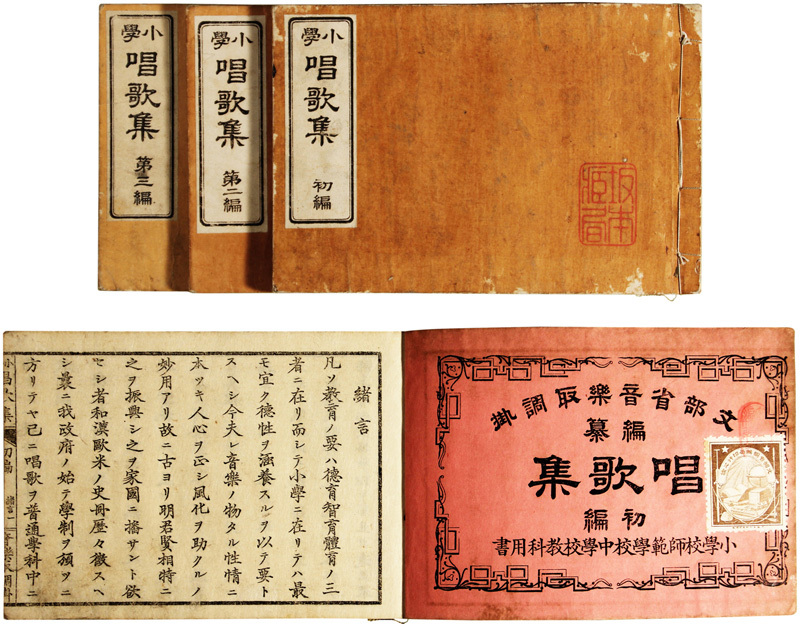 小學
唱歌集
初編
小學
唱歌集
第二編
小學
唱歌集
第三編
坂本
文部省音樂取調掛
編纂
唱歌集
初編
小學校師範學校中學校教科用書
緒言
凡ソ教育ノ要ハ德育智育體育ノ三
者ニ在リ而シテ小學ニ在リテハ最
モ宜ク德性ヲ涵養スルヲ以テ要ト
スヘシ今夫レ音樂ノ物タル性情ニ
本ツキ人心ヲ正シ風化ヲ助クルノ
妙用アリ故ニ古ヨリ明君賢相特ニ
之ヲ振興シ之ヲ家國ニ播サント欲
セシ者和漢歐米ノ史冊歷々徵スヘ
シ曩ニ我政府ノ始テ學制ヲ頒ツニ
方リテヤ已ニ唱歌ヲ普通學科中ニ